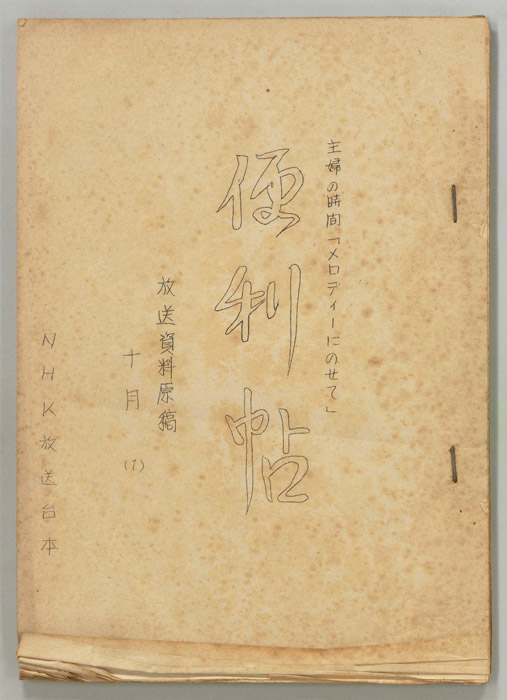 主婦の時間「メロディーにのせて」
便利帖
放送資料原稿
十月
(1)
NHK放送台本